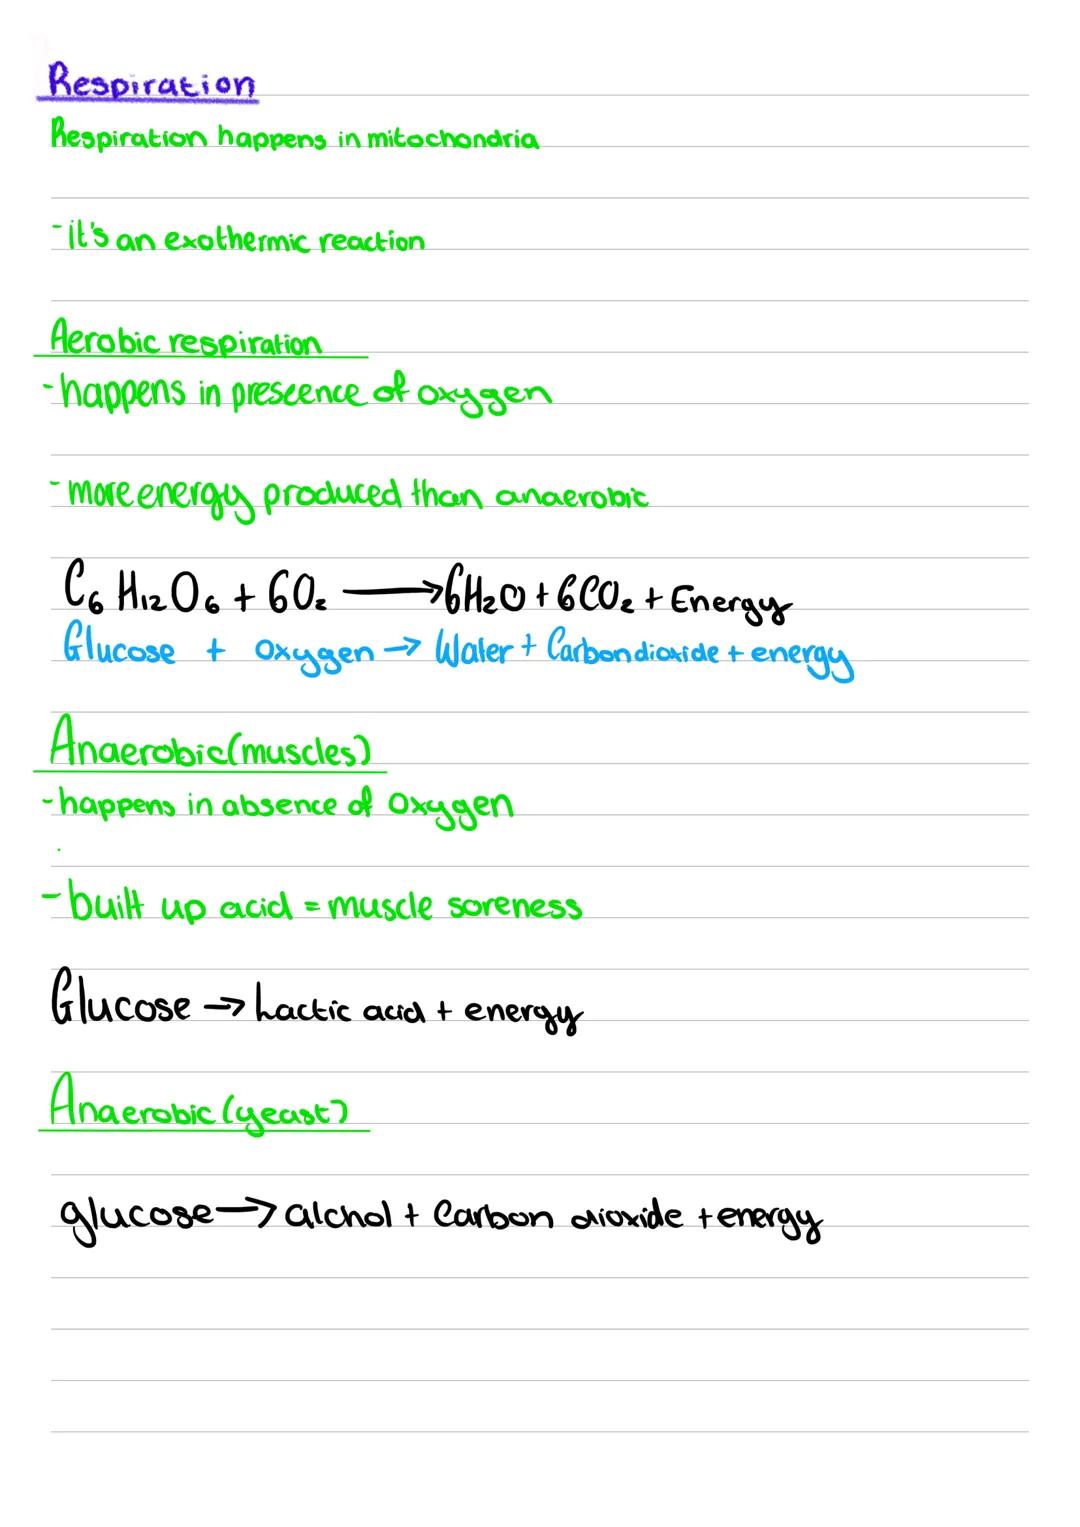 Respiration
Respiration happens in mitochondria
- it's an exothermic reaction
Aerobic respiration
- happens in presence of oxygen
- more energy produced than anaerobic
C₆H₁₂O₆ + 6O₂ → 6H₂O + 6CO₂ + Energy
Glucose + Oxygen → Water + Carbondioxide + energy
Anaerobic (muscles)
- happens in absence of Oxygen
- built up acid = muscle soreness
Glucose → Lactic acid + energy
Anaerobic (yeast)
glucose → alchol + Carbon dioxide + energy